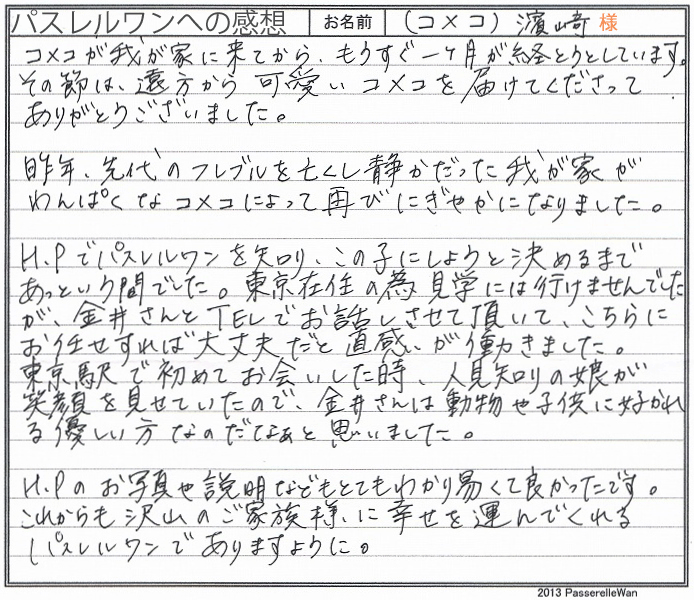 パスレルワンへの感想 お名前 (コメコ) 濱﨑 様
コメコが我が家に来てから、もうすぐ一ヶ月が経とうとしています。
その節は、遠方から可愛いコメコを届けてくださって
ありがとうございました。
昨年、先代のフレブルを亡くし静かだった我が家が
わんぱくなコメコによって再びにぎやかになりました。
H.Pでパスレルワンを知り、この子にしようと決めるまで
あっという間でした。東京在住の為見学には行けませんでした
が、金井さんとTELでお話しさせて頂いて、こちらに
お任せすれば大丈夫だと直感が働きました。
東京駅で初めてお会いした時、人見知りの娘が
笑顔を見せていたので、金井さんは動物や子供に好かれ
る優しい方なのだなぁと思いました。
H.Pのお写真や説明などもとてもわかり易くて良かったです。
これからも沢山のご家族様に幸せを運んでくれる
パスレルワンでありますように。
2013 PasserelleWan